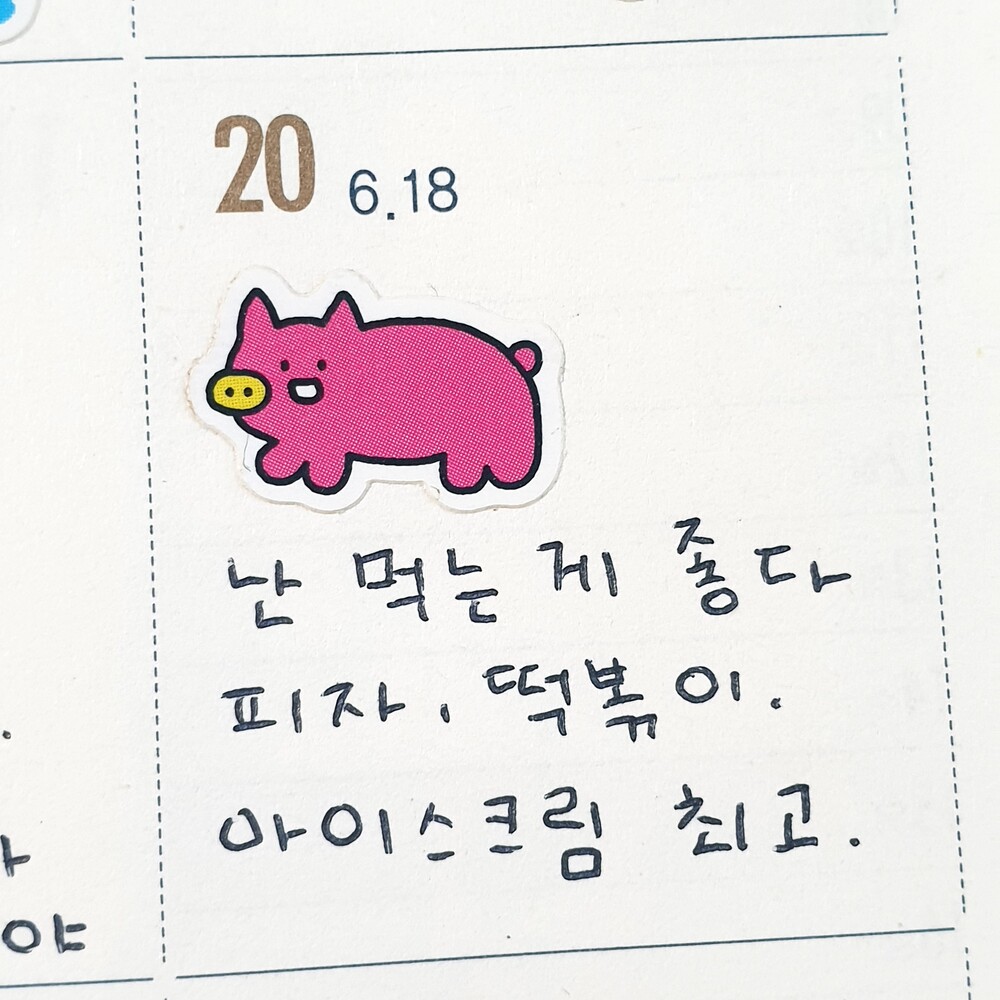 20 6.18
난 먹는 게 좋다
피자, 떡볶이.
아이스크림 최고.
야